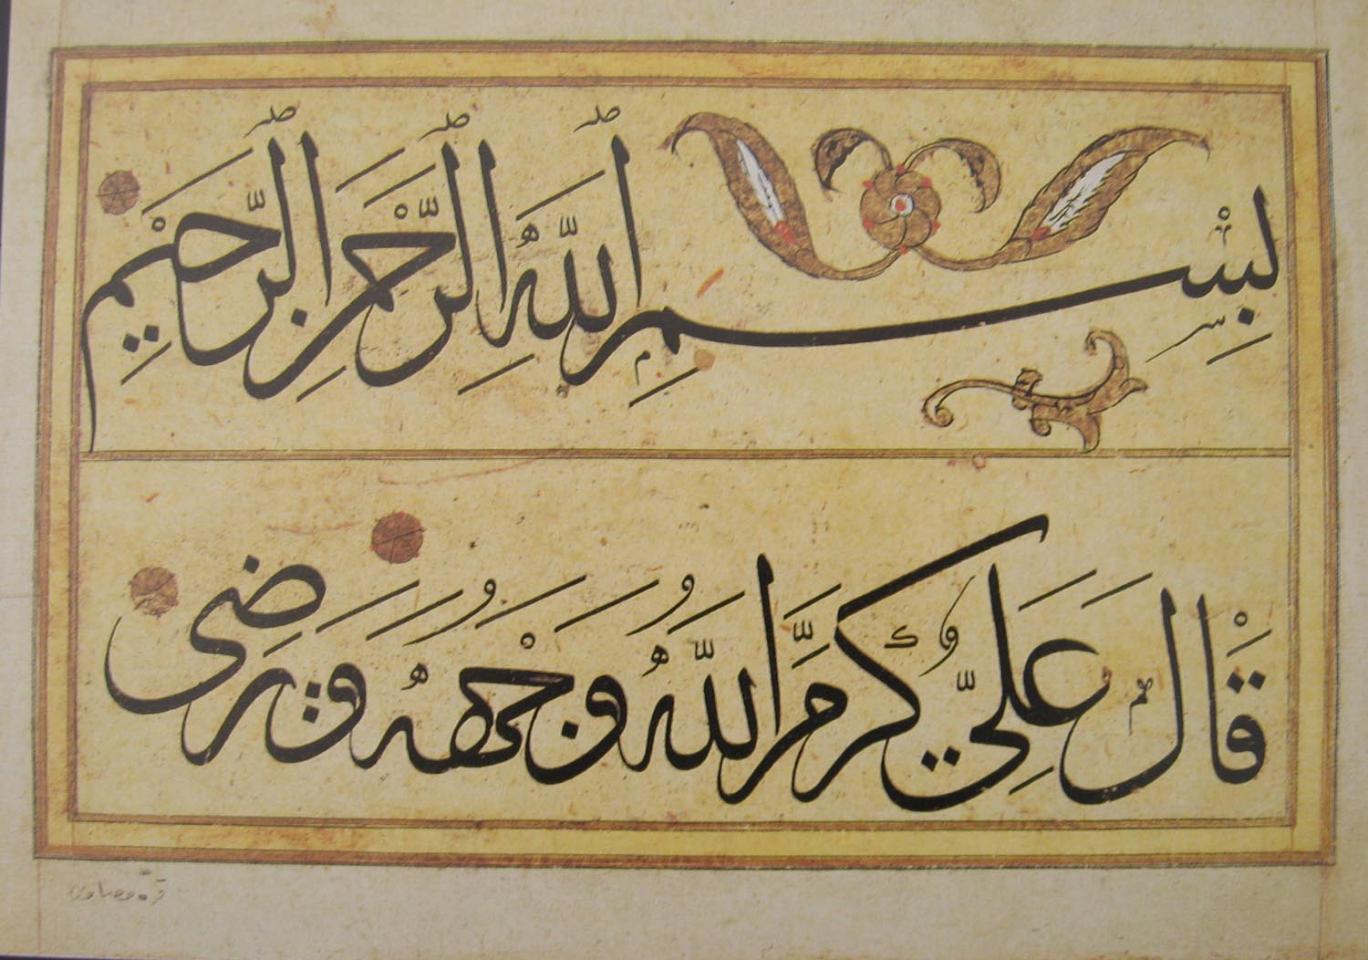 بِسْمِ اللَّهِ الرَّحْمَنِ الرَّحِيْمِ
قَالَ عَلِيٌّ كَرَّمَ اللَّهُ وَجْهَهُ وَرَضِيَ